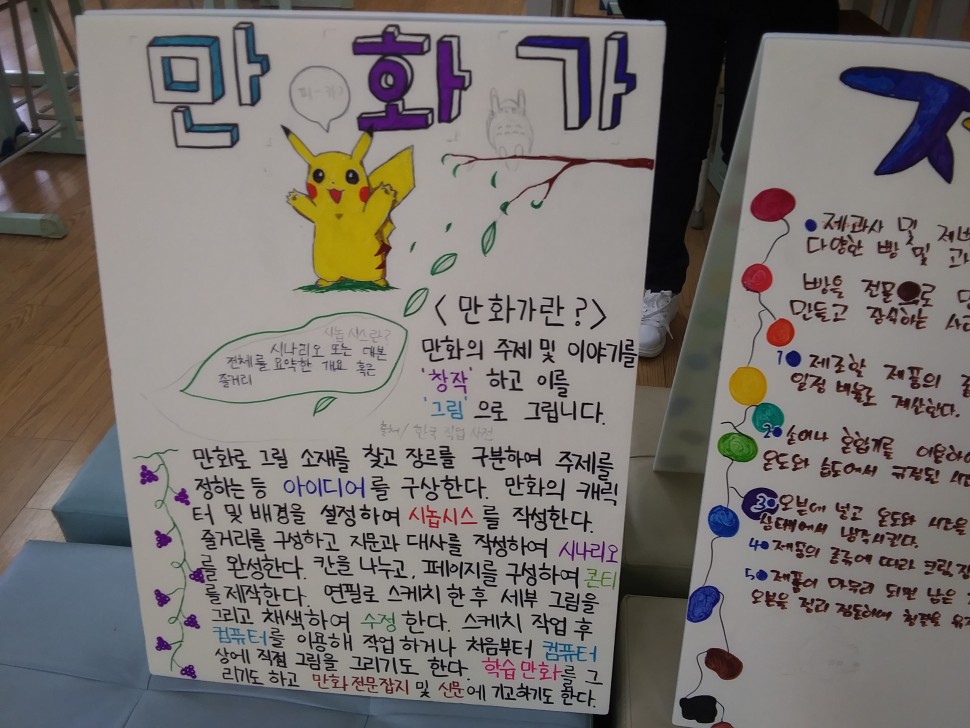 만화가
피-카츄
<만화가란?>
만화의 주제 및 이야기를
'창작' 하고 이를
'그림'으로 그립니다.
출처/한국 직업 사전
시놉시스란?
시나리오 또는 대본
전체를 요약한 개요 혹은
줄거리
만화로 그릴 소재를 찾고 장르를 구분하여 주제를
정하는 등 아이디어를 구상한다. 만화의 캐릭
터 및 배경을 설정하여 시놉시스를 작성한다.
줄거리를 구성하고 지문과 대사를 작성하여 시나리오
를 완성한다. 칸을 나누고, 페이지를 구성하여 콘티
를 제작한다. 연필로 스케치 한 후 세부 그림을
그리고 채색하여 수정한다. 스케치 작업 후
컴퓨터를 이용해 작업 하거나 처음부터 컴퓨터
상에 직접 그림을 그리기도 한다. 학습만화를 그
리기도 하고 만화 전문잡지 및 신문에 기고하기도 한다.
제과사 및 제빵
다양한 빵 및
빵을 전문으로
만들고 장식하는
1 제조할 제품의
일정 비율로 계산한다.
2 손이나 혼합기를 이용하여
온도와 습도에서 규정된
3 오븐에 넣고 온도와 시간을
상태에서 냉각시킨다.
4 제품의 종류에 따라 크림
5 제품이 마무리 되면 남은